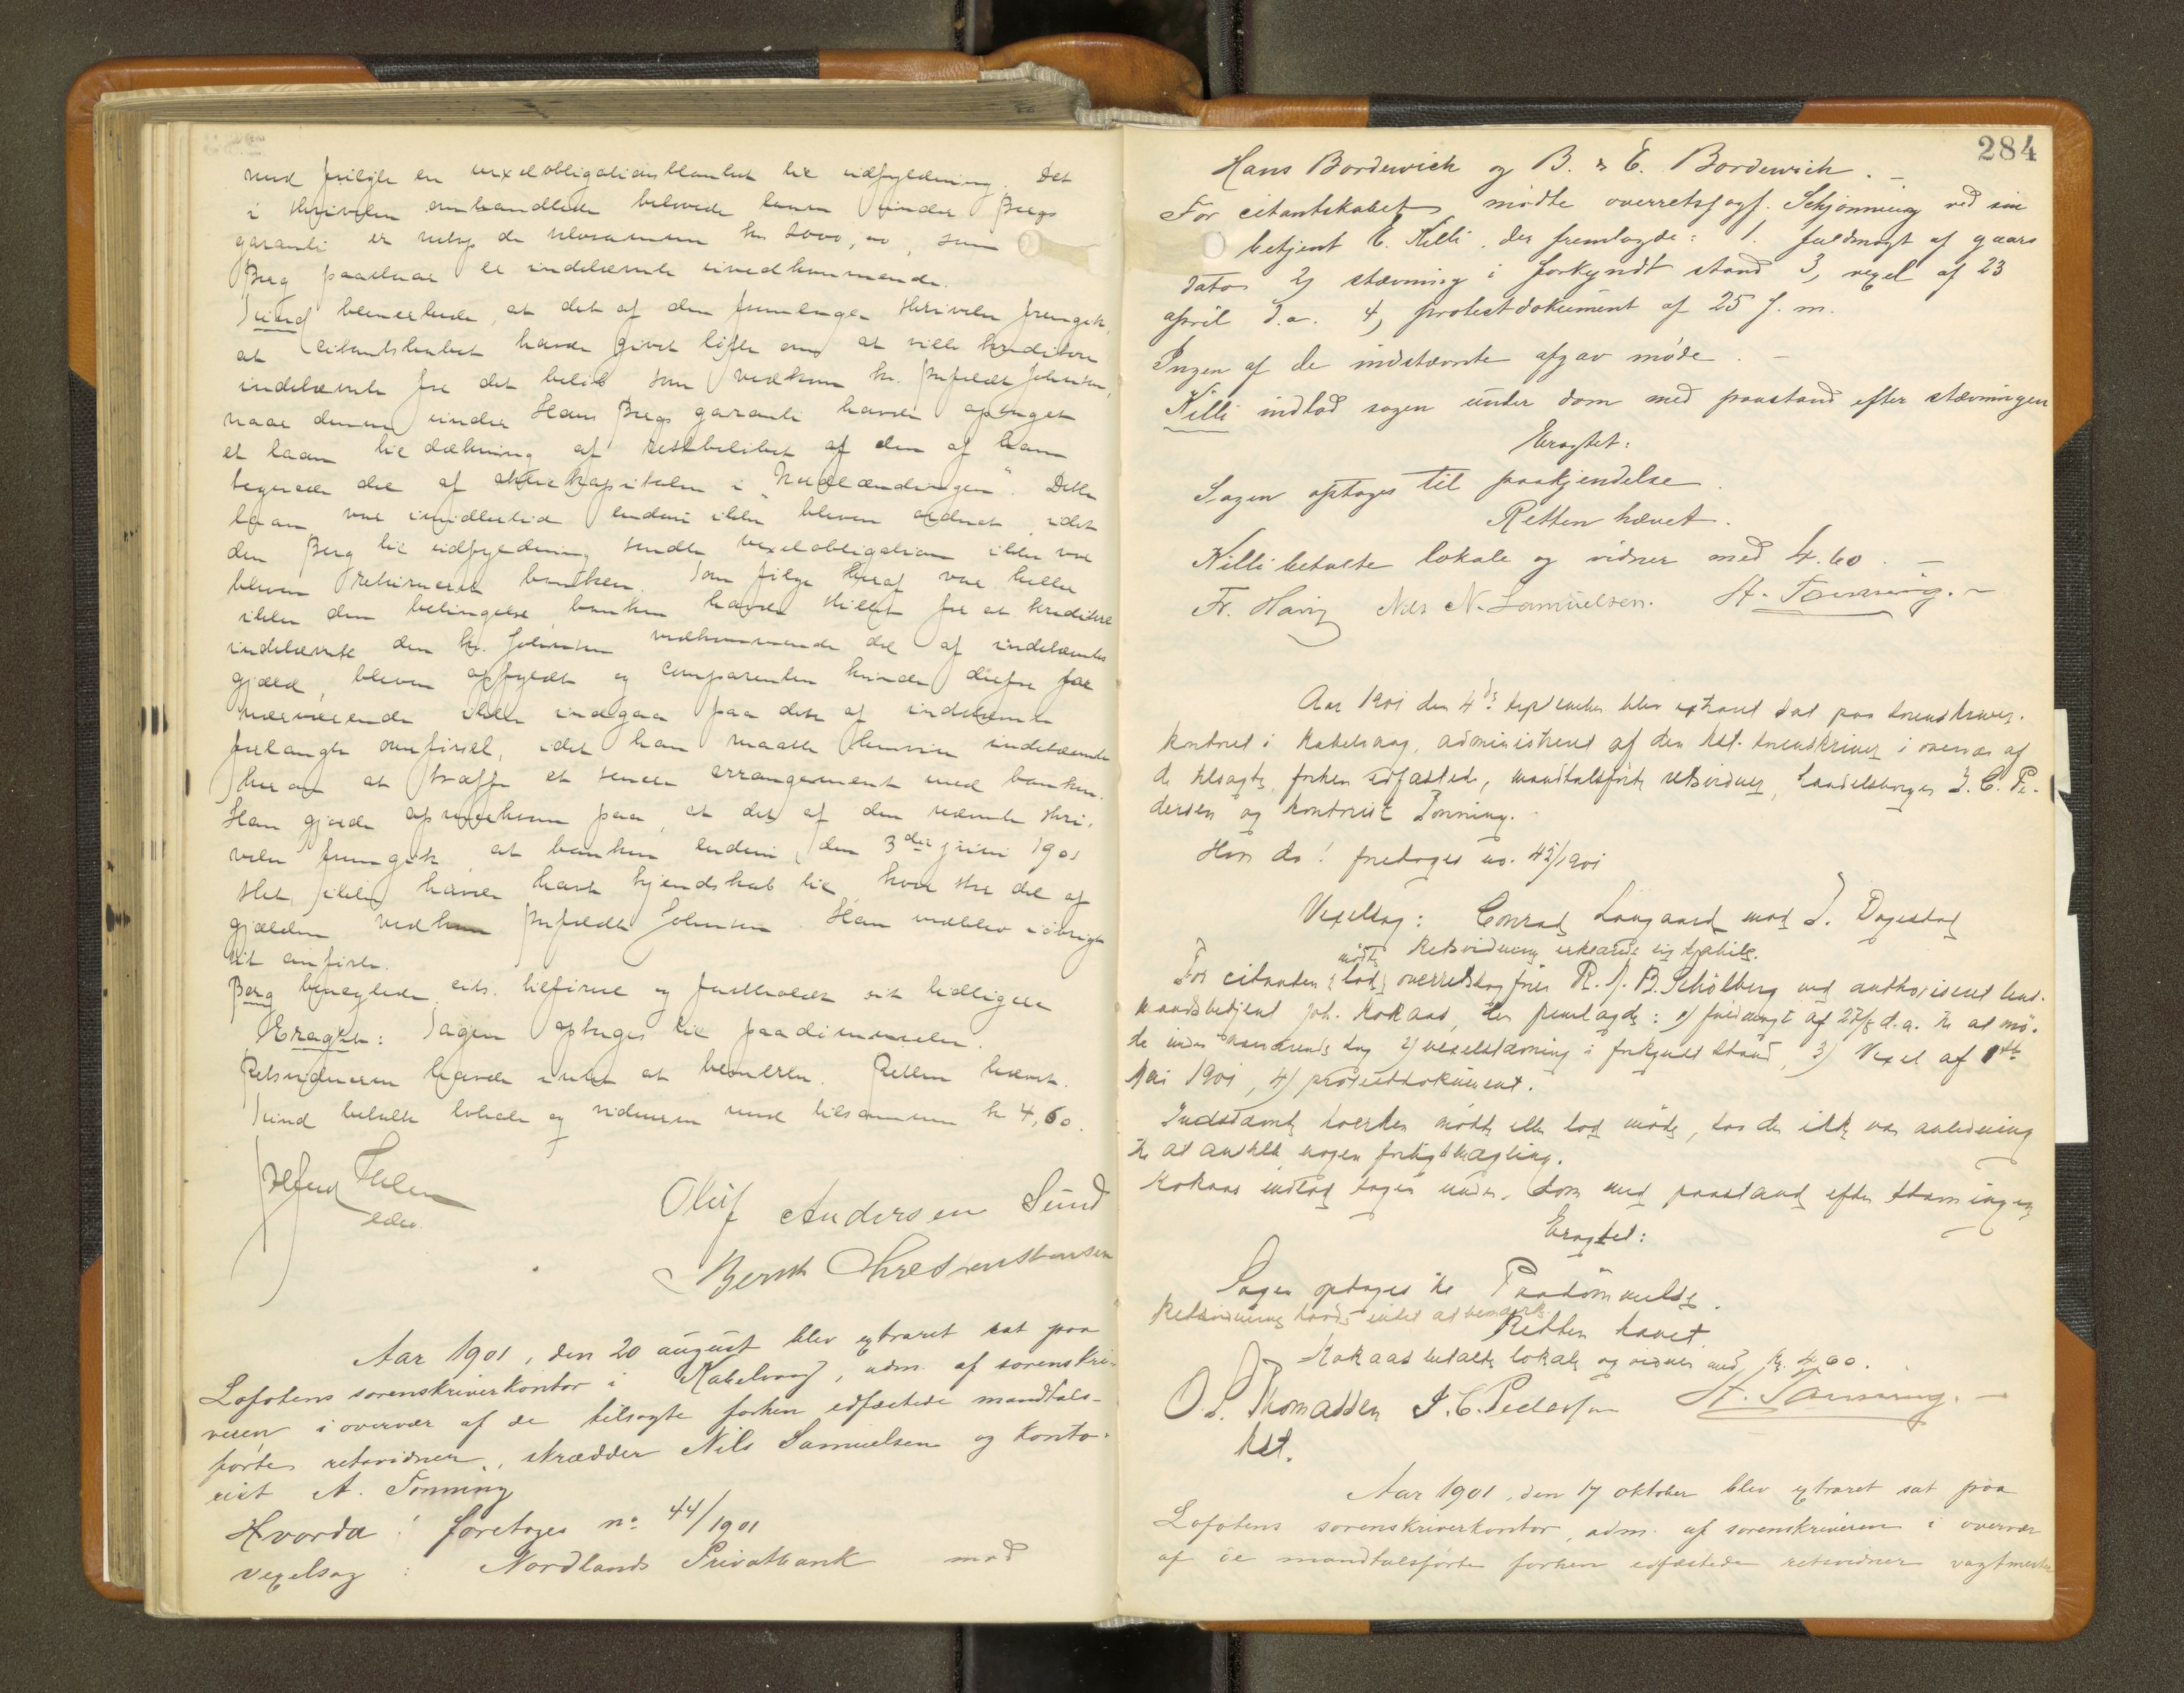 med følgte en vexelobligationsblanket til udfyldning. Det
i skrivelsen omhandlede belovede laan under Bergs
garanti er netop de tilsammen kr 2000,00, som
Berg paastaar er indstævnte uvedkommende.
Sund bemerkede, at det af den fremlagte skrivelse fremgik,
at citantskabet havde givet løfte om at ville kreditere
indstævnte for det beløb som vedkom hr. Johnsen,
naar denne under Hans Bergs garanti havde optaget
et laan til dækning af restbeløbet af den af ham
tegnede del af aktiekapitalen i "Nordlændingen". Dette
laan var imidlertid endnu ikke bleven ordnet, idet
den Berg til udfyldning sendte vexelobligation ikke var
bleven returneret banken. Som følge heraf var heller
ikke den betingelse banken havde stillet for at kreditere
indstævnte den hr. Johnsen vedkommende del af indstævntes
gjæld, bleven opfyldt og comparenten kunde derfor for
nærværende ikke indgaa paa den af indstævnte
forlangte omførsel, idet han maatte henvise indstævnte
her om at træffe et senere arrangement med banken.
Han gjorde opmerksom paa, at det af den nævnte skri-
velse fremgik at banken endnu den 3die juni 1901
slet ikke havde havt kjendskab til, hvor stor del af
gjælden vedkom Johnsen. Han vedblev iøvrigt
sit anførte.
Berg benegtede cits. tilførsel og fastholdt sit tidligere
Eragtet: Sagen optages til paadømmelse.
Retsvidnerne havde intet at bemerke. Retten hævet.
Sund betalte lokale og vidnerne med tilsammen kr 4,60.
Oluf Andersen Sund
Bernth Christensen
Aar 1901, den 20 august blev extraret sat paa
Lofotens sorenskriverkontor i Kabelvaag, adm. af sorenskri-
veren i overvær af de tilsagte forhen edfæstede mandtals-
førte retsvidner, skrædder Nils Samuelsen og konto-
rist A. Tønning
Hvorda! foretoges no 44/1901
vexelsag: Nordlands Privatbank mod
284
Hans Bordewich og B. & E. Bordewich. -
For citantskabet mødte overretssagf. Schjønning ved sin
betjent E. Killi, der fremlagde: 1. fuldmagt af gaars
dato 2) stævning i forkyndt stand 3, vexel af 23
april d.a. 4, protestdokument af 25 f. m.
Ingen af de indstævnte afgav møde. -
Killi indlod sagen under dom med paastand efter stævningen
Eragtet:
Sagen optages til paakjendelse.
Retten hævet.
Killi betalte lokale og vidner med 4.60. -
Nils N. Samuelsen. A. Tønning. -
Aar 1901 den 4de september blev extraret sat paa sorenskriver-
kontoret i Kabelvaag, administreret af den kst. sorenskriver i overvær af
de tilsagte, forhen edfæstede, mandtalsførte retsvidner, handelsborger I. C. Pe-
dersen og kontorist Tønning.
Hvor da! foretoges no. 45/1901
Vexelsag: Conrad Langaard mod I. Dagestad
Retsvidnerne erklærede sig habile.
For citanten mødte overretssagfører R. J. B. Schölberg ved authoriseret lens-
mandsbetjent Joh. Kokaas, der fremlagde: 1) fuldmagt af 27/8 d.a. til at mø-
de under nærværende sag 2) vexelstævning i forkyndt stand, 3) Vexel af 1ste
Mai 1901, 4) protestdokument.
Indstævnte hverken mødte eller lod møde, saa der ikke var anledning
til at anstille nogen forligsmægling.
Kokaas indlod sagen under dom med paastand efter stævningen
Eragtet:
Sagen optages til Paadömmelse.
Retsvidnerne havde intet at bemærke.
Retten hævet.
Kokaas betalte lokale og vidner med kr. 4.60.
O. S. Thomassen I. C. Pedersen A. Tønning. -
kst.
Aar 1901, den 17 oktober blev extraret sat paa
Lofotens sorenskriverkontor, adm. af sorenskriveren i overvær
af de mandtalsførte forhen edfæstede retsvidner vagtmester